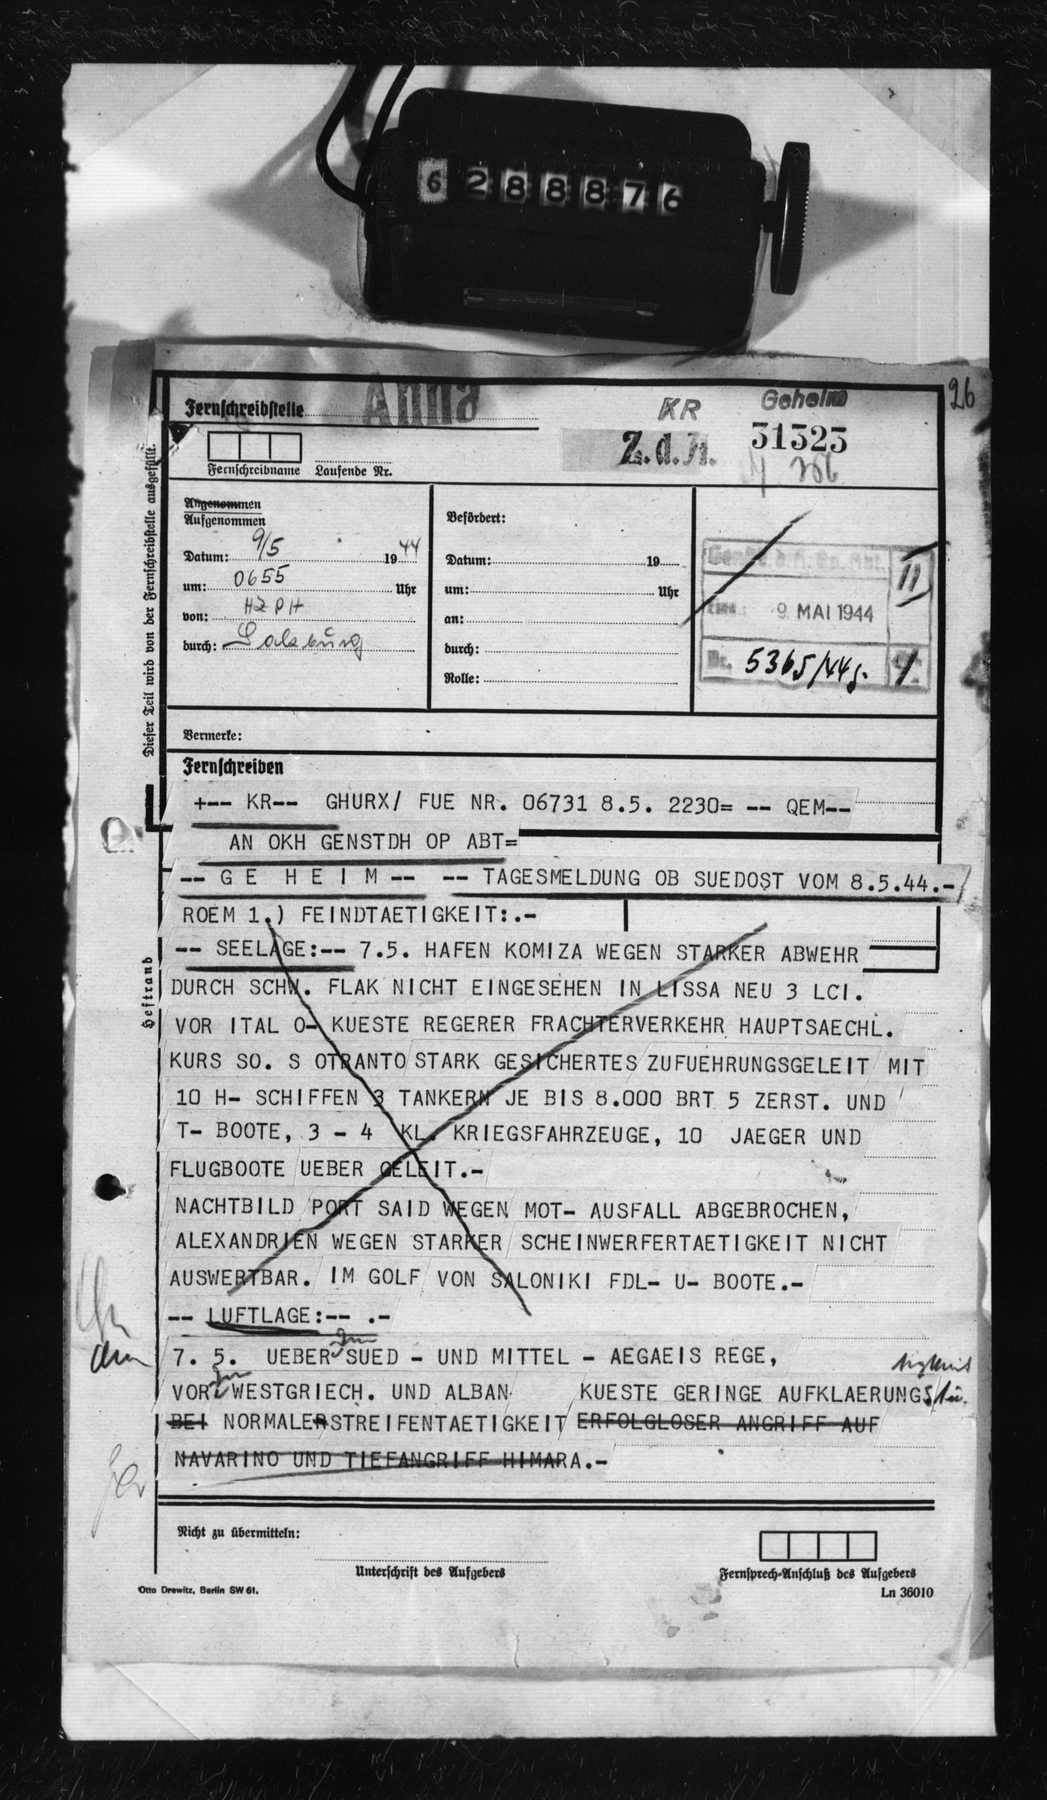 6288876
26
Fernschreibstelle Anna KR Geheim
Z.d.A. 31323
Fernschreibname Laufende Nr.
Dieser Teil wird von der Fernschreibstelle ausgefüllt.
Angenommen
Aufgenommen
Datum: 9/5 19 44
um: 0655 Uhr
von: HZPH
durch: Salzburg
Befördert:
Datum: 19
um: Uhr
an:
durch:
Rolle:
GenSt.d.H. Op.Abt. II
9. MAI 1944
Nr. 5365/44 g.
Vermerke:
Fernschreiben
+-- KR-- GHURX/ FUE NR. 06731 8.5. 2230= -- QEM--
AN OKH GENSTDH OP ABT=
-- G E H E I M -- -- TAGESMELDUNG OB SUEDOST VOM 8.5.44.-
ROEM 1.) FEINDTAETIGKEIT:.-
-- SEELAGE:-- 7.5. HAFEN KOMIZA WEGEN STARKER ABWEHR
DURCH SCHW. FLAK NICHT EINGESEHEN IN LISSA NEU 3 LCI.
VOR ITAL O- KUESTE REGERER FRACHTERVERKEHR HAUPTSAECHL.
KURS SO. S OTRANTO STARK GESICHERTES ZUFUEHRUNGSGELEIT MIT
10 H- SCHIFFEN 3 TANKERN JE BIS 8.000 BRT 5 ZERST. UND
T- BOOTE, 3 - 4 KL. KRIEGSFAHRZEUGE, 10 JAEGER UND
FLUGBOOTE UEBER GELEIT.-
NACHTBILD PORT SAID WEGEN MOT- AUSFALL ABGEBROCHEN,
ALEXANDRIEN WEGEN STARKER SCHEINWERFERTAETIGKEIT NICHT
AUSWERTBAR. IM GOLF VON SALONIKI FDL- U- BOOTE.-
-- LUFTLAGE:-- .-
7. 5. UEBER SUED - UND MITTEL - AEGAEIS REGE,
VOR WESTGRIECH. UND ALBAN KUESTE GERINGE AUFKLAERUNGS
BEI NORMALER STREIFENTAETIGKEIT ERFOLGLOSER ANGRIFF AUF
NAVARINO UND TIEFANGRIFF HIMARA.-
Heftrand
Nicht zu übermitteln:
Unterschrift des Aufgebers
Fernsprech-Anschluß des Aufgebers
Otto Drewitz, Berlin SW 61.
Ln 36010